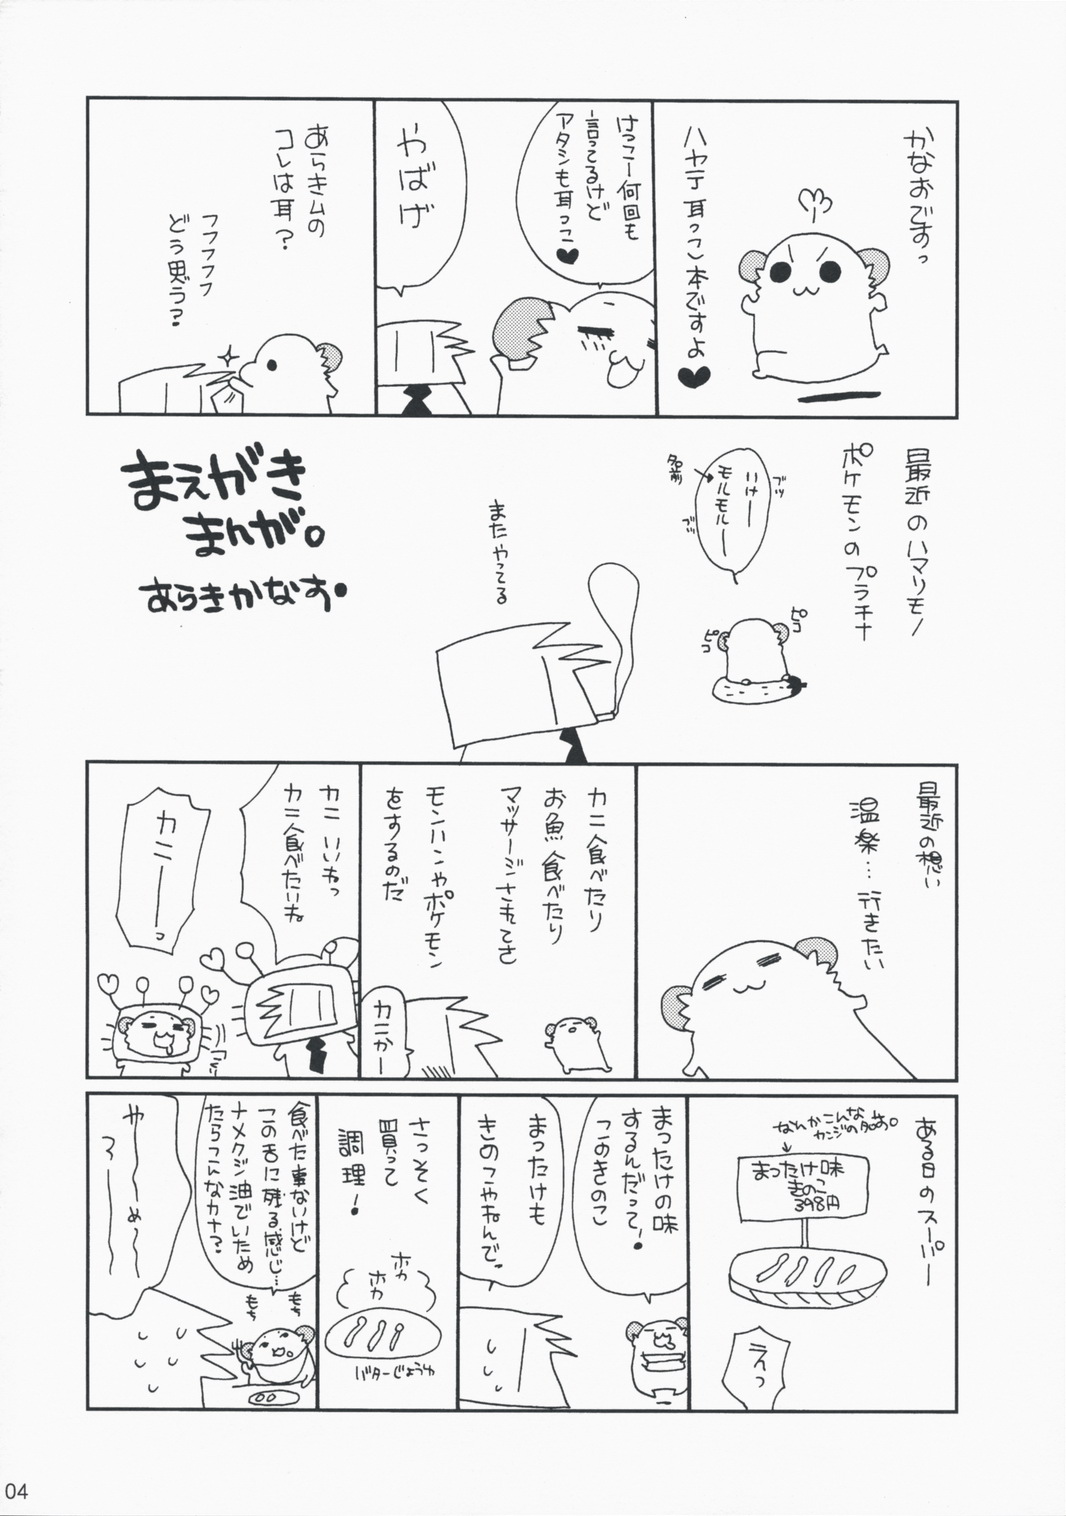 かなおですっ
ハヤテ耳っこ本ですよ♥
けっこー何回も
言ってるけど
アタシも耳っこ♥
やばげ
あらきムの
コレは耳?
フフフフフ
どう思う?
最近のハマリモノ
ポケモンのプラチナ
いけー
モルモルー
名前
ブツ
ブツ
ピコ
ピコ
またやってる
まえがき
まんが。
あらきかなお。
最近の想い
温楽…行きたい
カニ食べたり
お魚食べたり
マッサージされてさ
モンハンやポケモン
をするのだ
カニかー
カニいいねっ
カニ食べたいね
カニーーっ
ある日のスーパー
なんかこんな
カンジの名前。
まったけ味
きのこ
398円
えっ
まったけの味
するんだって!
このきのこ
まったけも
きのこやねんでっ
さっそく
買って
調理!
ホカ
ホカ
バターじょうゆ
食べた事ないけど
この舌に残る感じ…
ナメクジ油でいため
たらこんなカナ?
もち
もち
や〜〜め〜〜
ろ〜〜〜
04